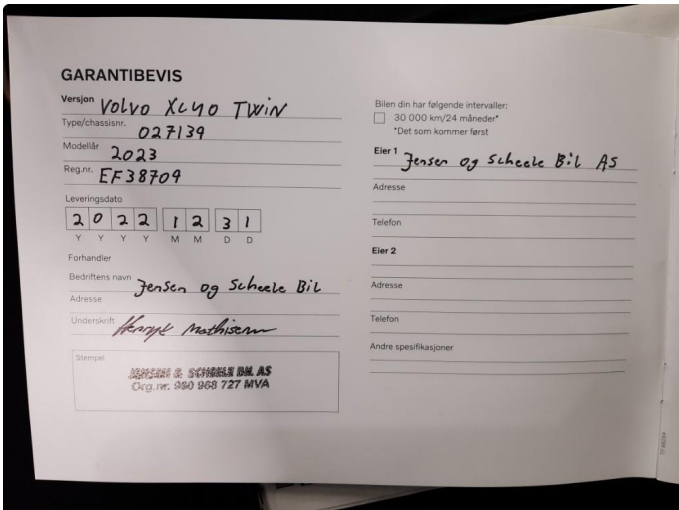 GARANTIBEVIS
Versjon Volvo XC40 TWIN
Type/chassisnr. 027139
Modellår 2023
Reg.nr. EF38709
Leveringsdato
2 0 2 2 1 2 3 1
Y Y Y Y M M D D
Forhandler
Bedriftens navn Jensen og Scheele Bil
Adresse
Underskrift Henrik Mathisen
Stempel
JENSEN & SCHEELE BIL AS
Org.nr. 980 968 727 MVA
Bilen din har følgende intervaller:
30 000 km/24 måneder*
*Det som kommer først
Eier 1 Jensen og Scheele Bil AS
Adresse
Telefon
Eier 2
Adresse
Telefon
Andre spesifikasjoner